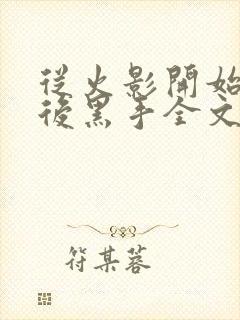 從火影開始
後黑手全文
符某蓉